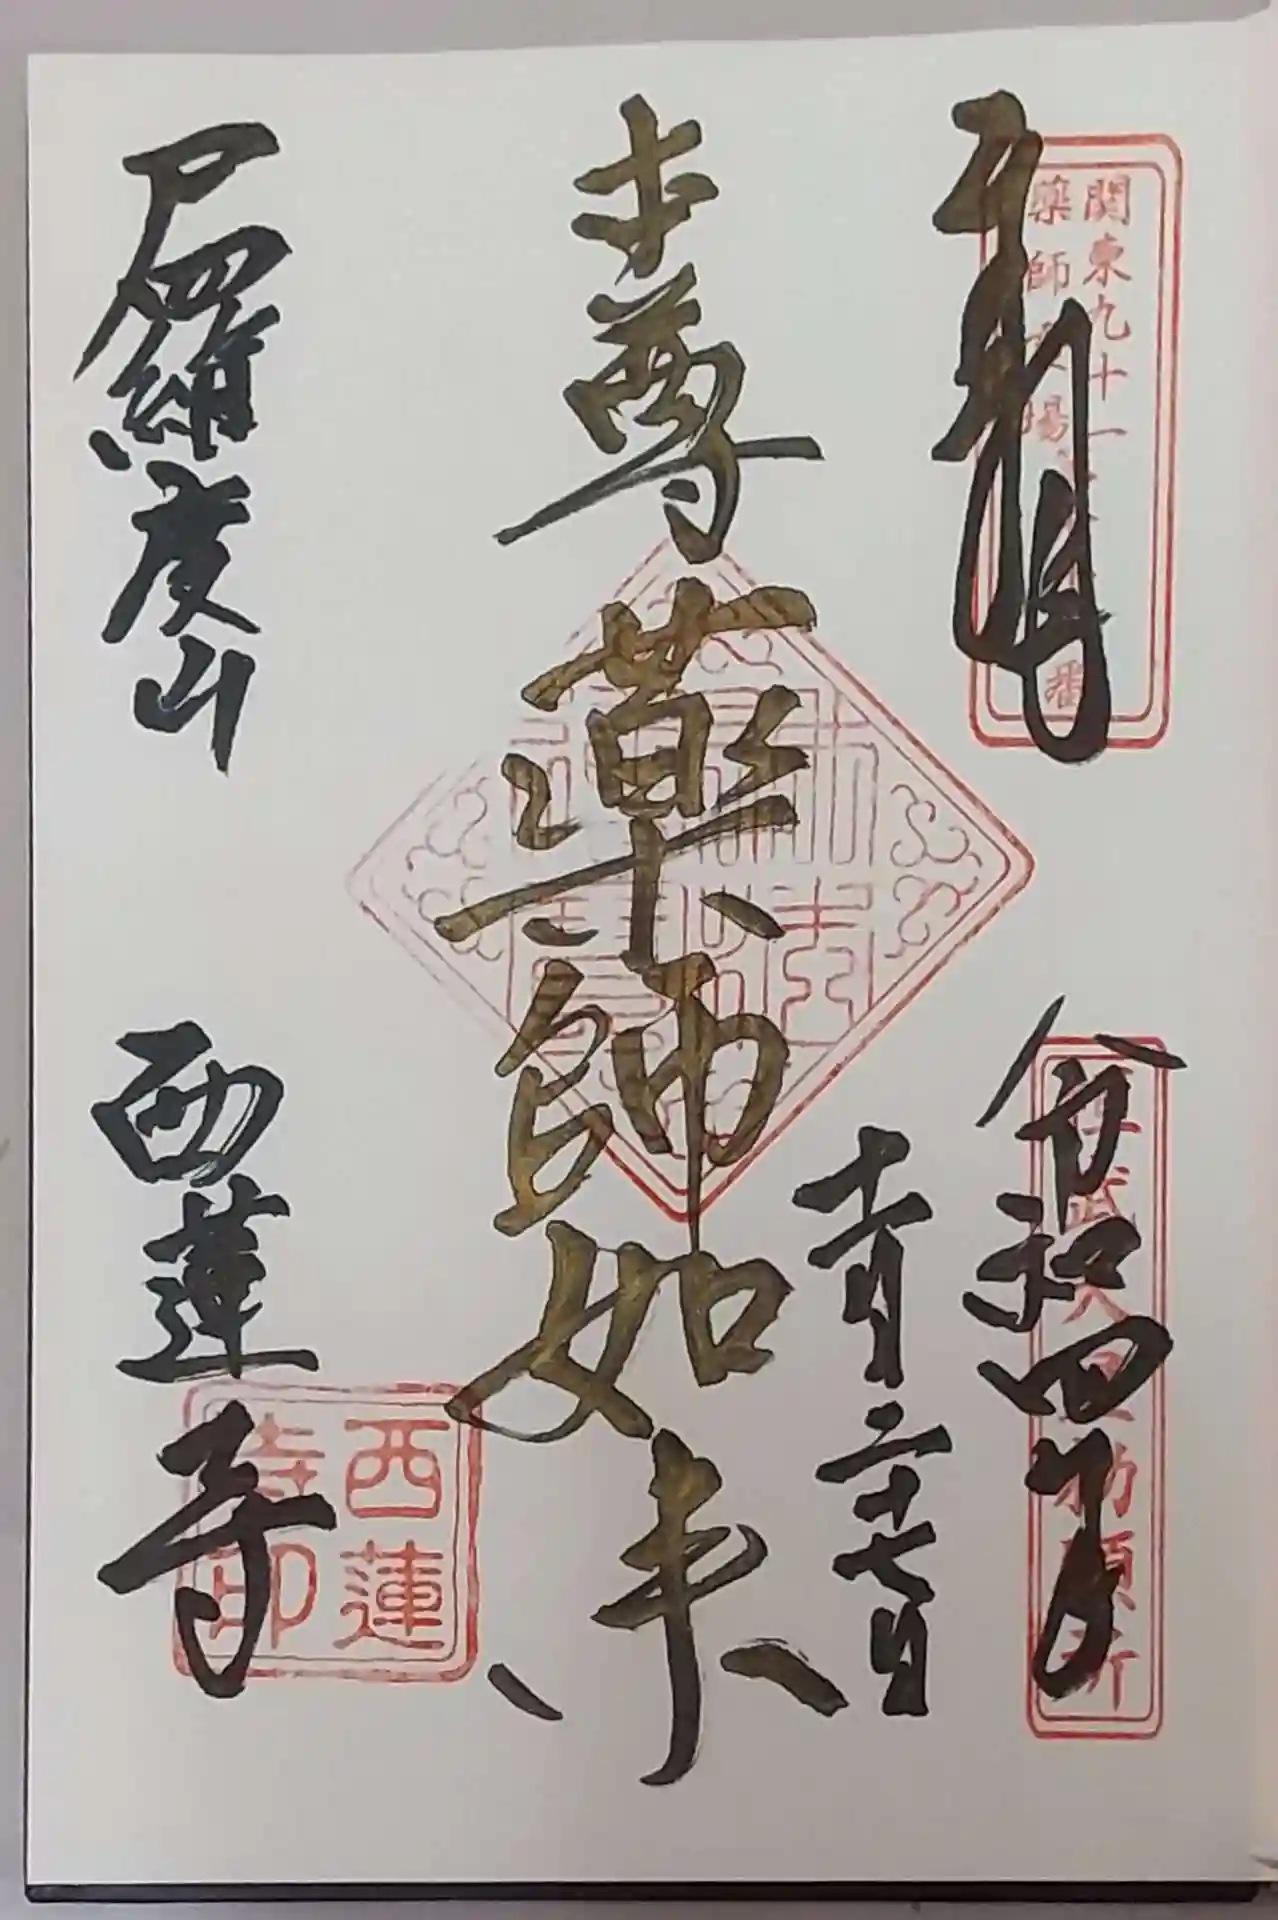 奉拝
関東九十一
薬師霊場
桓武天皇勅願所
令和四年
十一月二十七日
本尊薬師如来
尸羅度山
西蓮寺
西蓮
寺印